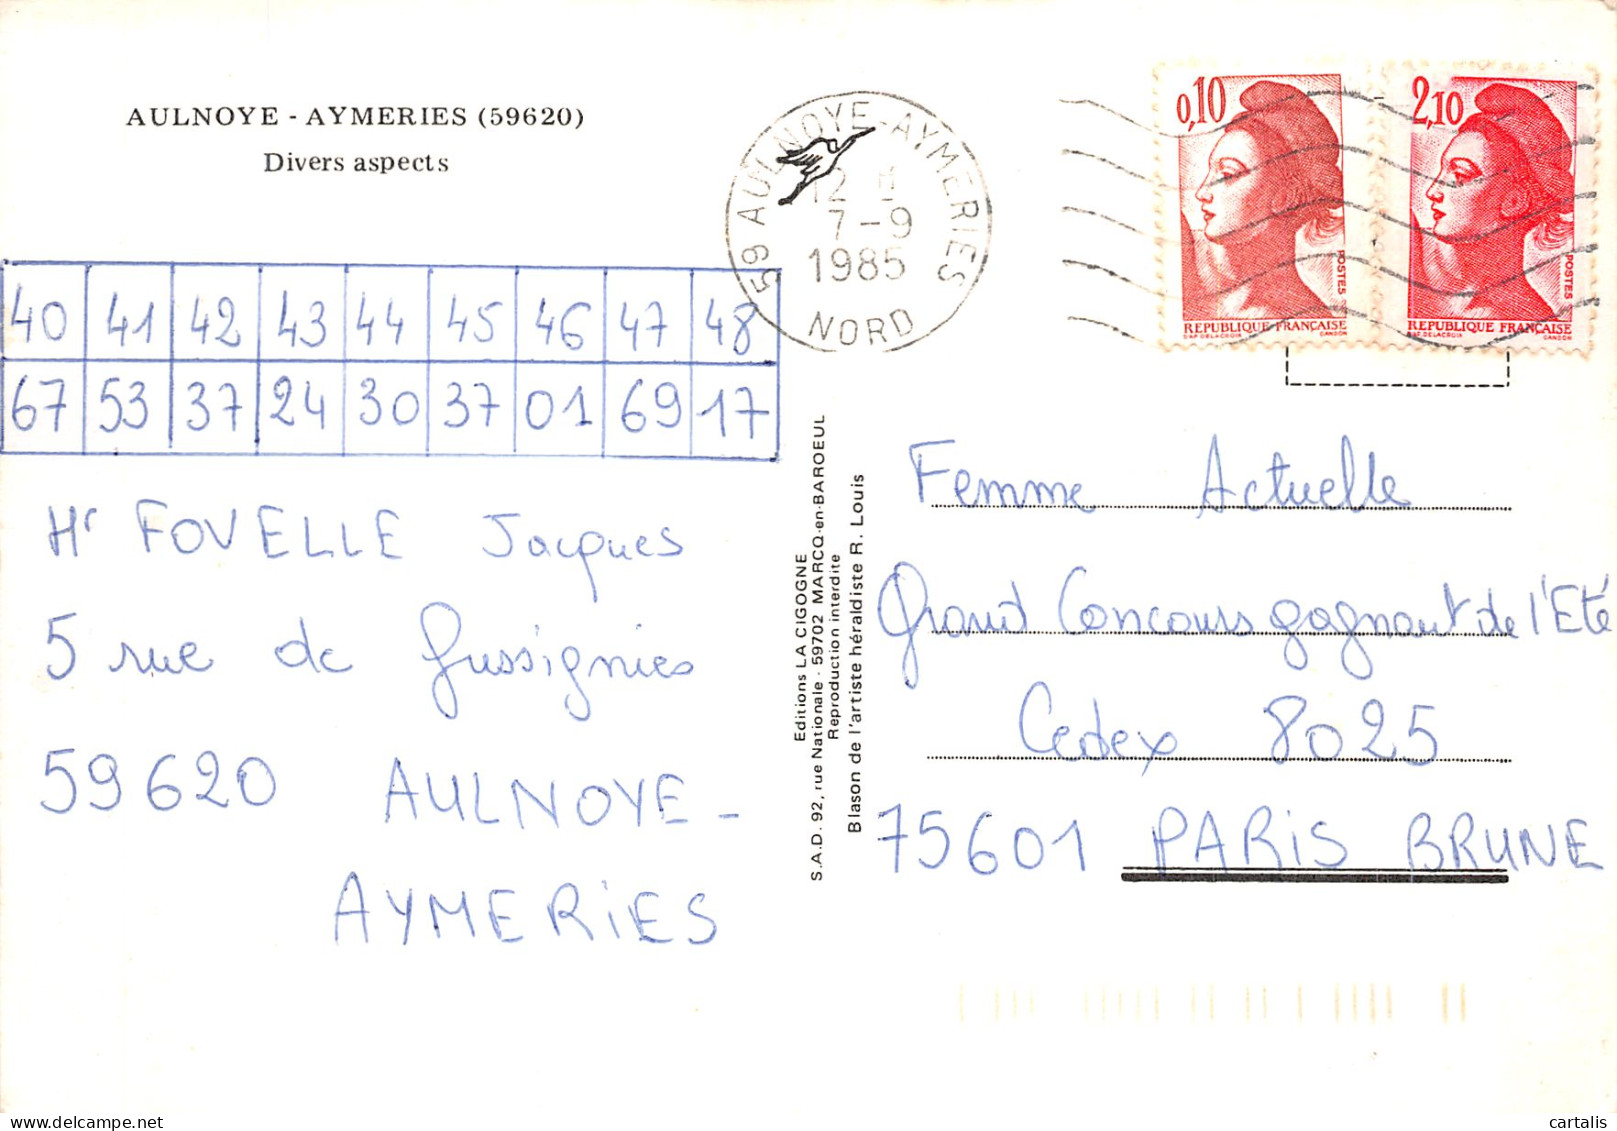 AULNOYE - AYMERIES (59620)
Divers aspects
59 AULNOYE-AYMERIES
7-9
1985
NORD
0,10
POSTES
REPUBLIQUE FRANÇAISE
D'AP. DELACROIX GANDON
2,10
POSTES
REPUBLIQUE FRANÇAISE
D'AP. DELACROIX GANDON
40 41 42 43 44 45 46 47 48
67 53 37 24 30 37 01 69 17
Mr FOVELLE Jacques
5 rue de Gussignies
59620 AULNOYE-
AYMERIES
Editions LA CIGOGNE
S.A.D. 92, rue Nationale - 59702 MARCQ-en-BAROEUL
Reproduction interdite
Blason de l'artiste héraldiste R. Louis
Femme Actuelle
Grand Concours gagnant de l'Eté
Cedex 8025
75601 PARIS BRUNE
www.delcampe.net
cartalis